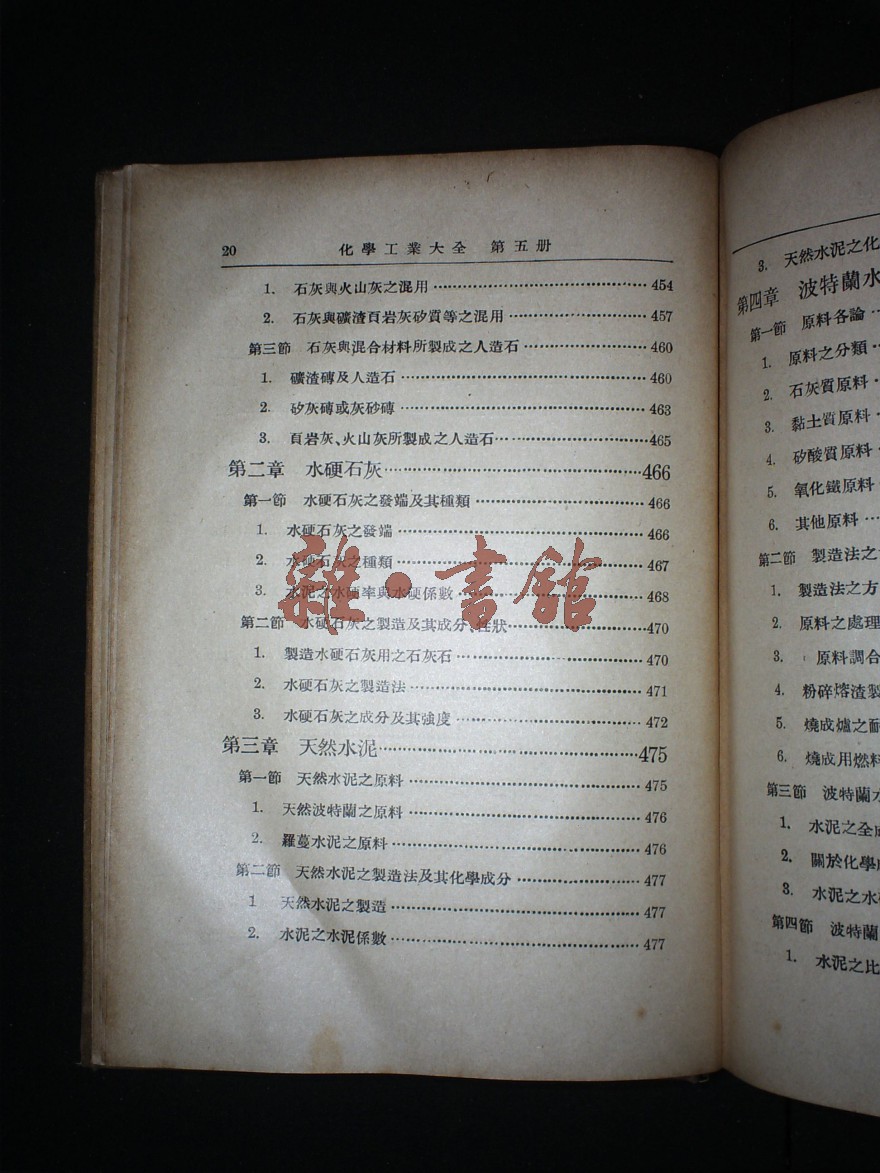 20 化學工業大全 第五册
1. 石灰與火山灰之混用 454
2. 石灰與礦渣頁岩灰矽質等之混用 457
第三節 石灰與混合材料所製成之人造石 460
1. 礦渣磚及人造石 460
2. 矽灰磚或灰砂磚 463
3. 頁岩灰、火山灰所製成之人造石 465
第二章 水硬石灰 466
第一節 水硬石灰之發端及其種類 466
1. 水硬石灰之發端 466
2. 水硬石灰之種類 467
3. 水泥之水硬率與水硬係數 468
第二節 水硬石灰之製造及其成分、性狀 470
1. 製造水硬石灰用之石灰石 470
2. 水硬石灰之製造法 471
3. 水硬石灰之成分及其強度 472
第三章 天然水泥 475
第一節 天然水泥之原料 475
1. 天然波特蘭之原料 476
2. 羅蔓水泥之原料 476
第二節 天然水泥之製造法及其化學成分 477
1 天然水泥之製造 477
2. 水泥之水泥係數 477
雜·書館
3. 天然水泥之化
第四章 波特蘭水
第一節 原料各論
1. 原料之分類
2. 石灰質原料
3. 黏土質原料
4. 矽酸質原料
5. 氧化鐵原料
6. 其他原料
第二節 製造法之
1. 製造法之方
2. 原料之處理
3. 原料調合
4. 粉碎熔渣製
5. 燒成爐之耐
6. 燒成用燃料
第三節 波特蘭水
1. 水泥之全成
2. 關於化學
3. 水泥之水
第四節 波特蘭
1. 水泥之比